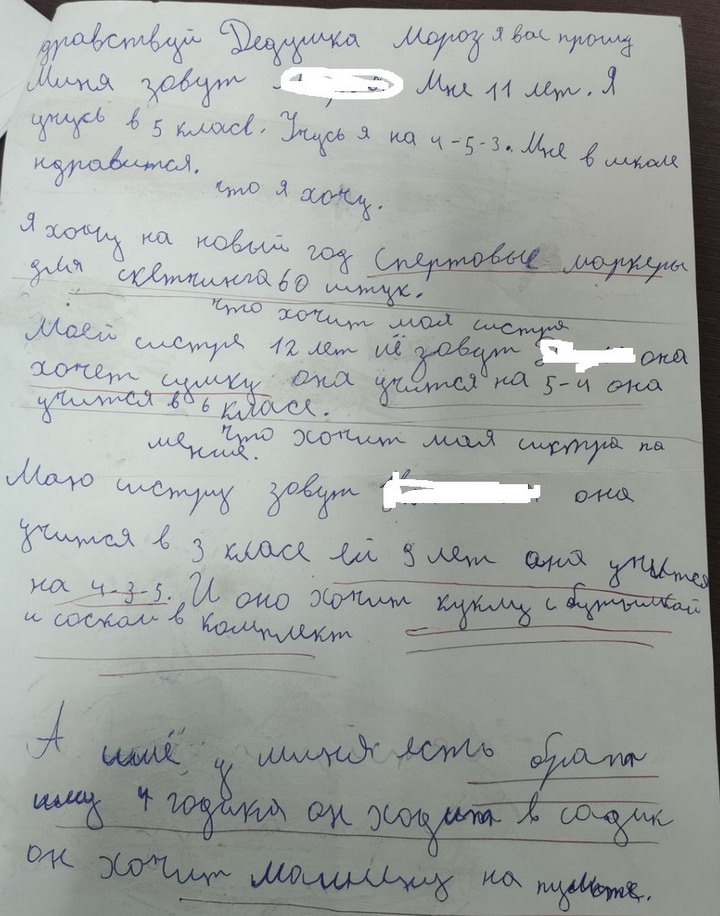 дравствуй Дедушка Мороз я вас прошу
Миня зовут Мне 11 лет. Я
учусь в 5 класе. Учусь я на 4-5-3. Мне в школе
ндравится.
что я хочу.
Я хочу на новый год спертовые маркеры
для скетчинга 60 штук.
что хочит мая систра
Маей систре 12 лет её зовут она
хочет сумку она учится на 5-4 она
учится в 6 класе.
что хочит мая систра па
мение.
Маю систру зовут она
учится в 3 класе ей 9 лет она учится
на 4-3-5. И оно хочит куклу с бутылкай
и соскай в комплект
А ишё у миня есть брат
иму 4 годика он ходит в садик
он хочит машинку на пульте.